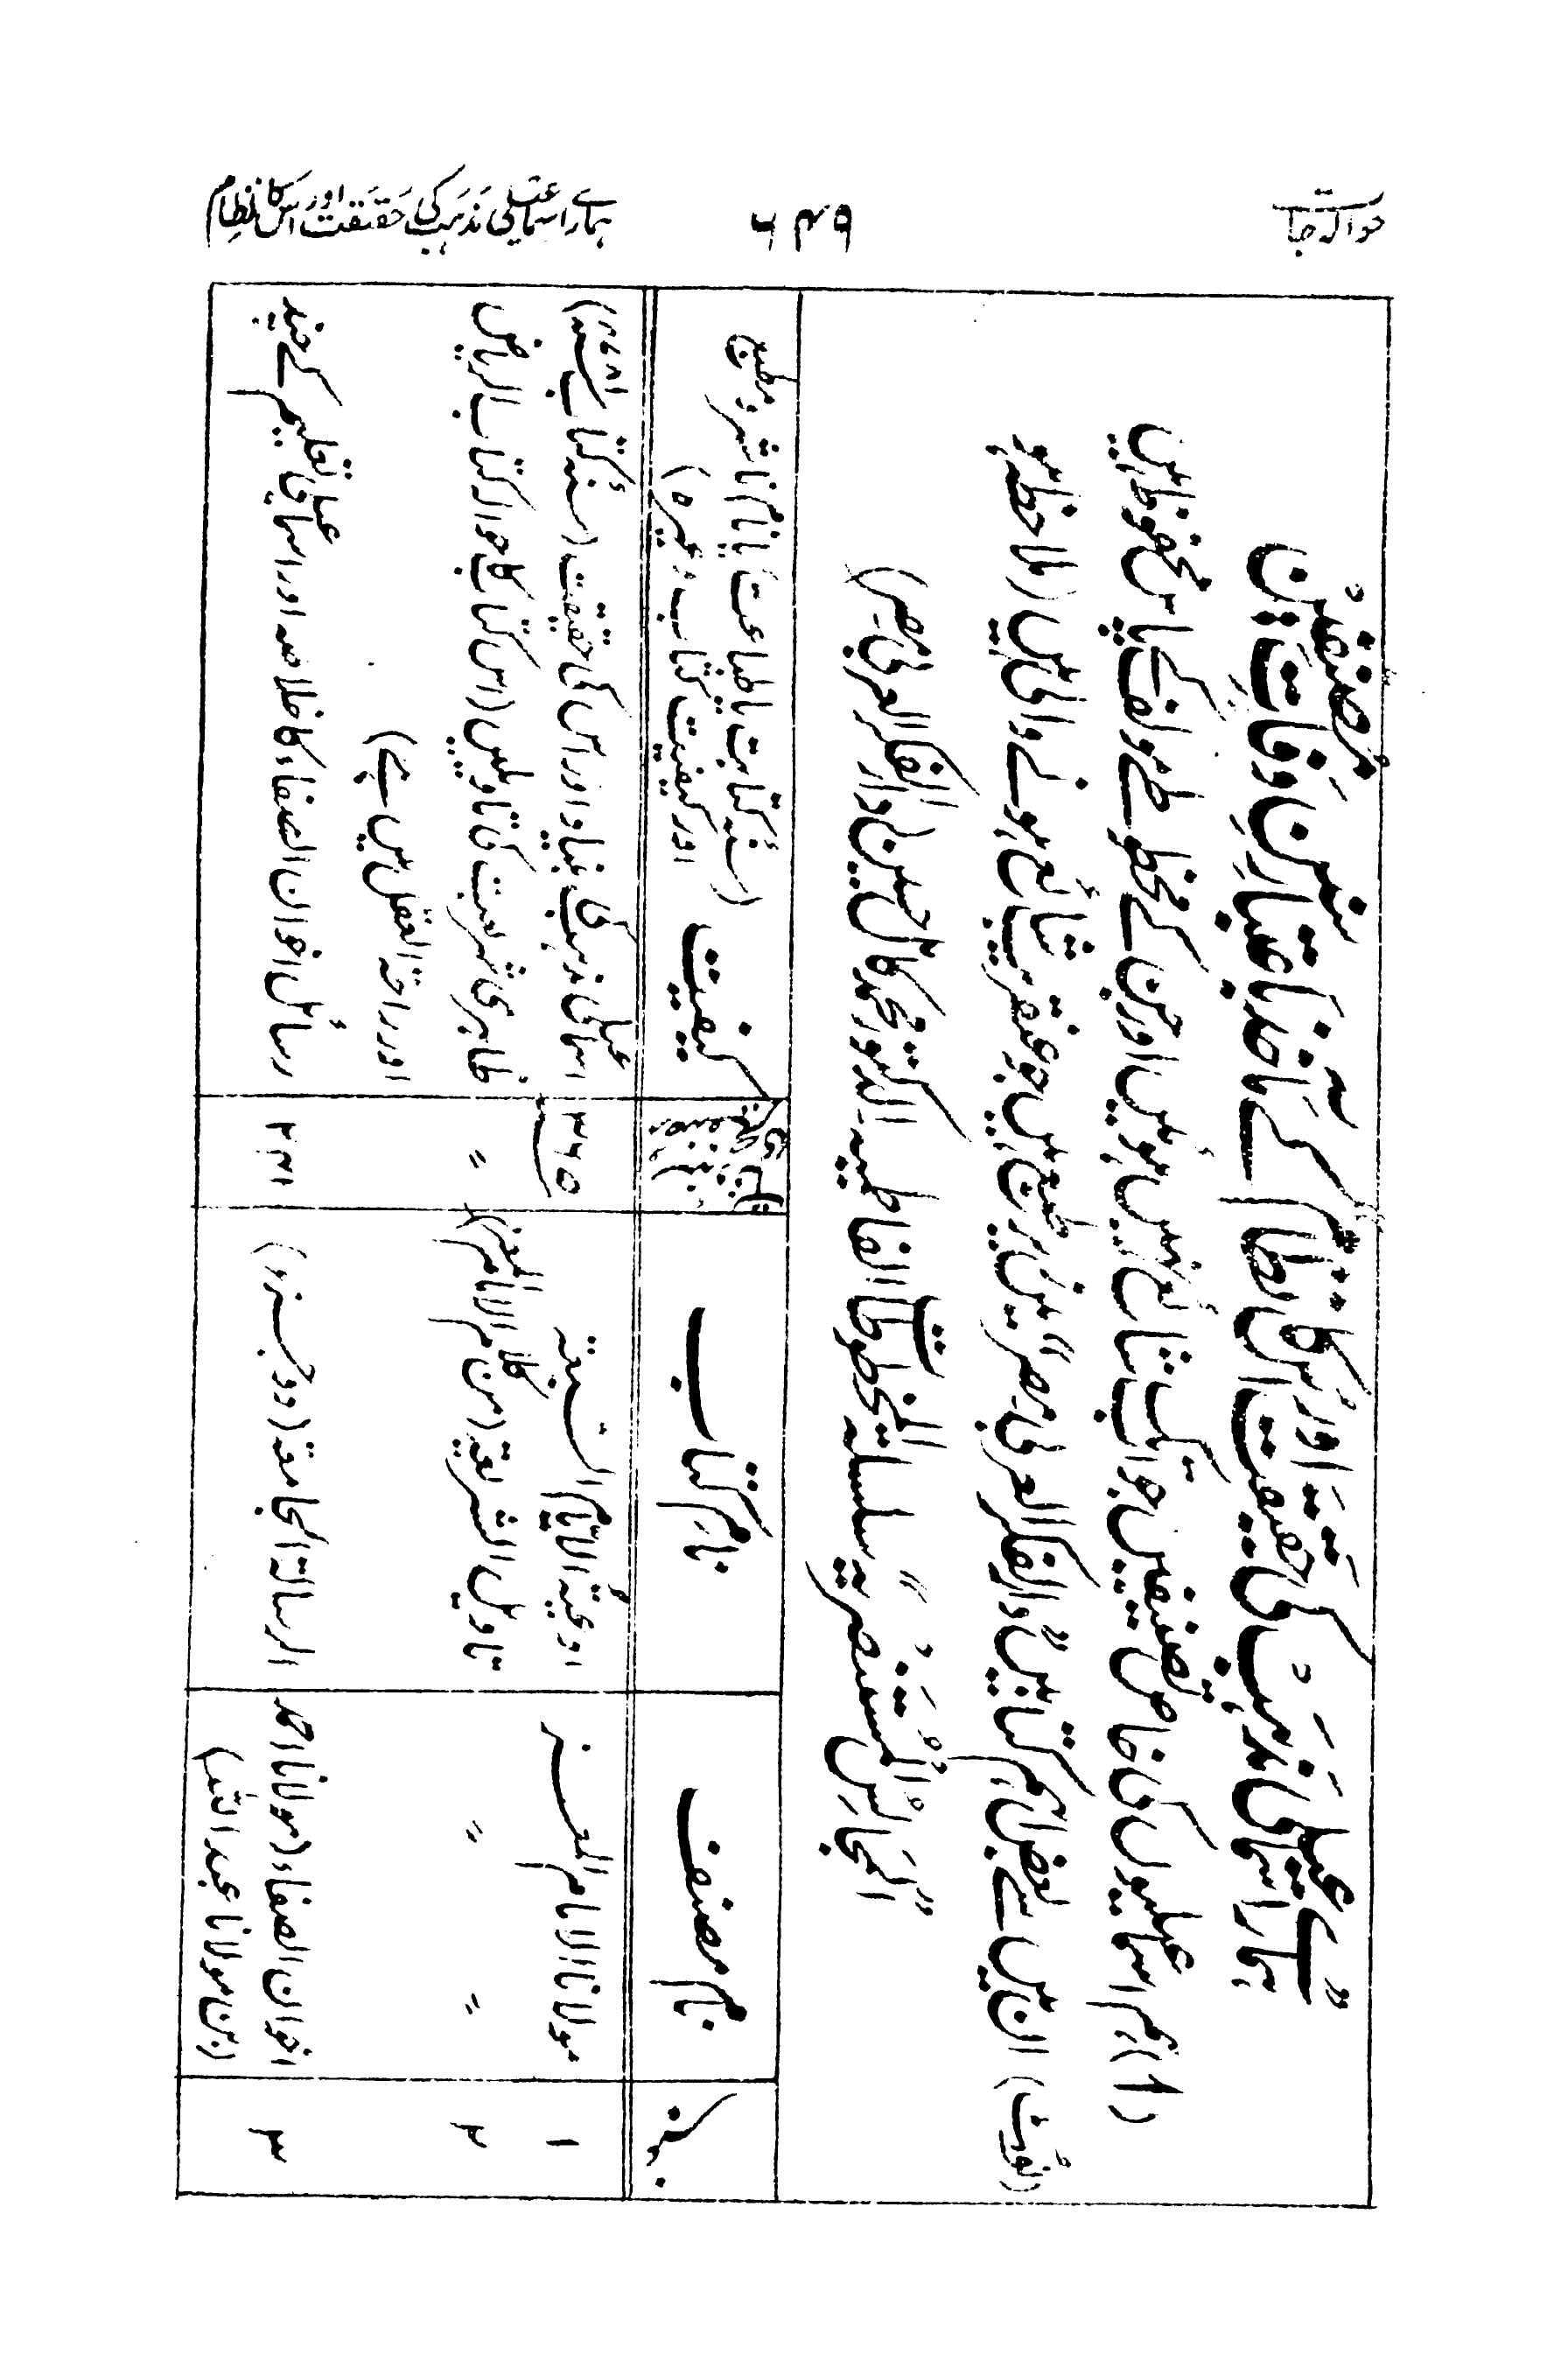 حوالہ جات
۶۴۹
ہمارے اسماعیلی مذہب کی حقیقت اور اس کا نظام
”ہمارے اسماعیلی مذہب کی حقیقت اور اس کا نظام“ کے ماخذ باعتبار سنین وفات مصنفین
(۱) ہم اسماعیلیوں کی خاص تصنیفیں جو اب تک شائع نہیں ہوئیں اور جن کے مخطوطے مؤلف کے پاس محفوظ ہیں
(نوٹ) ان میں سے بعض اہم کتابیں ”دار الفکر العربی مصر“ میں زیر طبع ہیں جو عنقریب شائع ہونے والی ہیں (ملاحظہ ہو
”المجالس المستنصریہ“ سلسلہ مخطوطات الفاطمیہ۔ الدکتور محمد کامل حسین۔ دار الفکر العربی مصر)
نام مصنف
نام کتاب
کیفیت (سنہ کتابت یا طباعت یا نام ناشر و مطبع
اور کیفیت کتاب وغیرہ)
۱
مولانا الامام المعز
ادعیۃ الایام السبعۃ
۳۶۵
اسماعیلی مذہب کی بنیاد اور اس کی حقیقت (سنہ کتابت
۲
〃 〃
تاویل الشریعۃ (من کلام الامام المعز)
〃
ظاہری شریعت کی تاویلیں (اس کتاب کا حوالہ کتاب الریاض
اور راحۃ العقل میں ہے)
۳
اخوان الصفاء (مولانا احمد
ابن مولانا عبد اللہ)
الرسالۃ الجامعۃ (دو جزو)
رسائل اخوان الصفاء کا خلاصہ اور اسماعیلی تعلیم کے چند